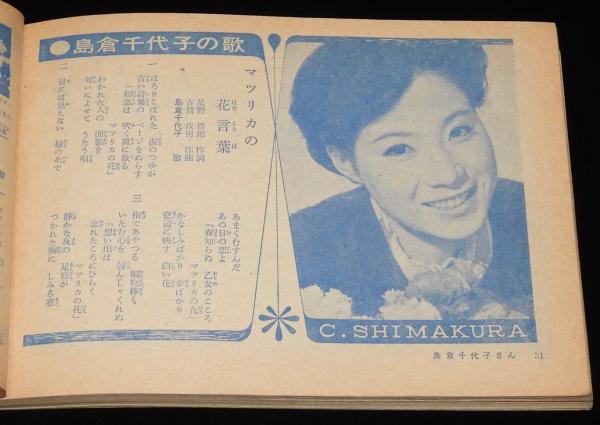 ●島倉千代子の歌
マツリカの
花言葉
はな ことば
星野哲郎 作詞
古賀政男 作曲
島倉千代子 歌
一
ほろりこぼれた 涙のつゆが
古い詩集の ページをぬらす
「初恋は 吹く風に散る
マツリカの花」
わかれた人の 面影を
匂いによせて うたう唄
二
目には見えない 緑の糸で
あまくむすんだ
あの日の恋よ
「春知らぬ 乙女のこころ
マツリカの花」
かなしみばかり 夢ばかり
窓辺に映す 白い花
三
指であやつる 編物棒も
いたむ心を 包んじゃくれぬ
「想い出は
忘れたころにひらく
マツリカの花」
静かな夜の 足音が
つかれた胸に しみる窓
C. SHIMAKURA
島倉千代子さん 31